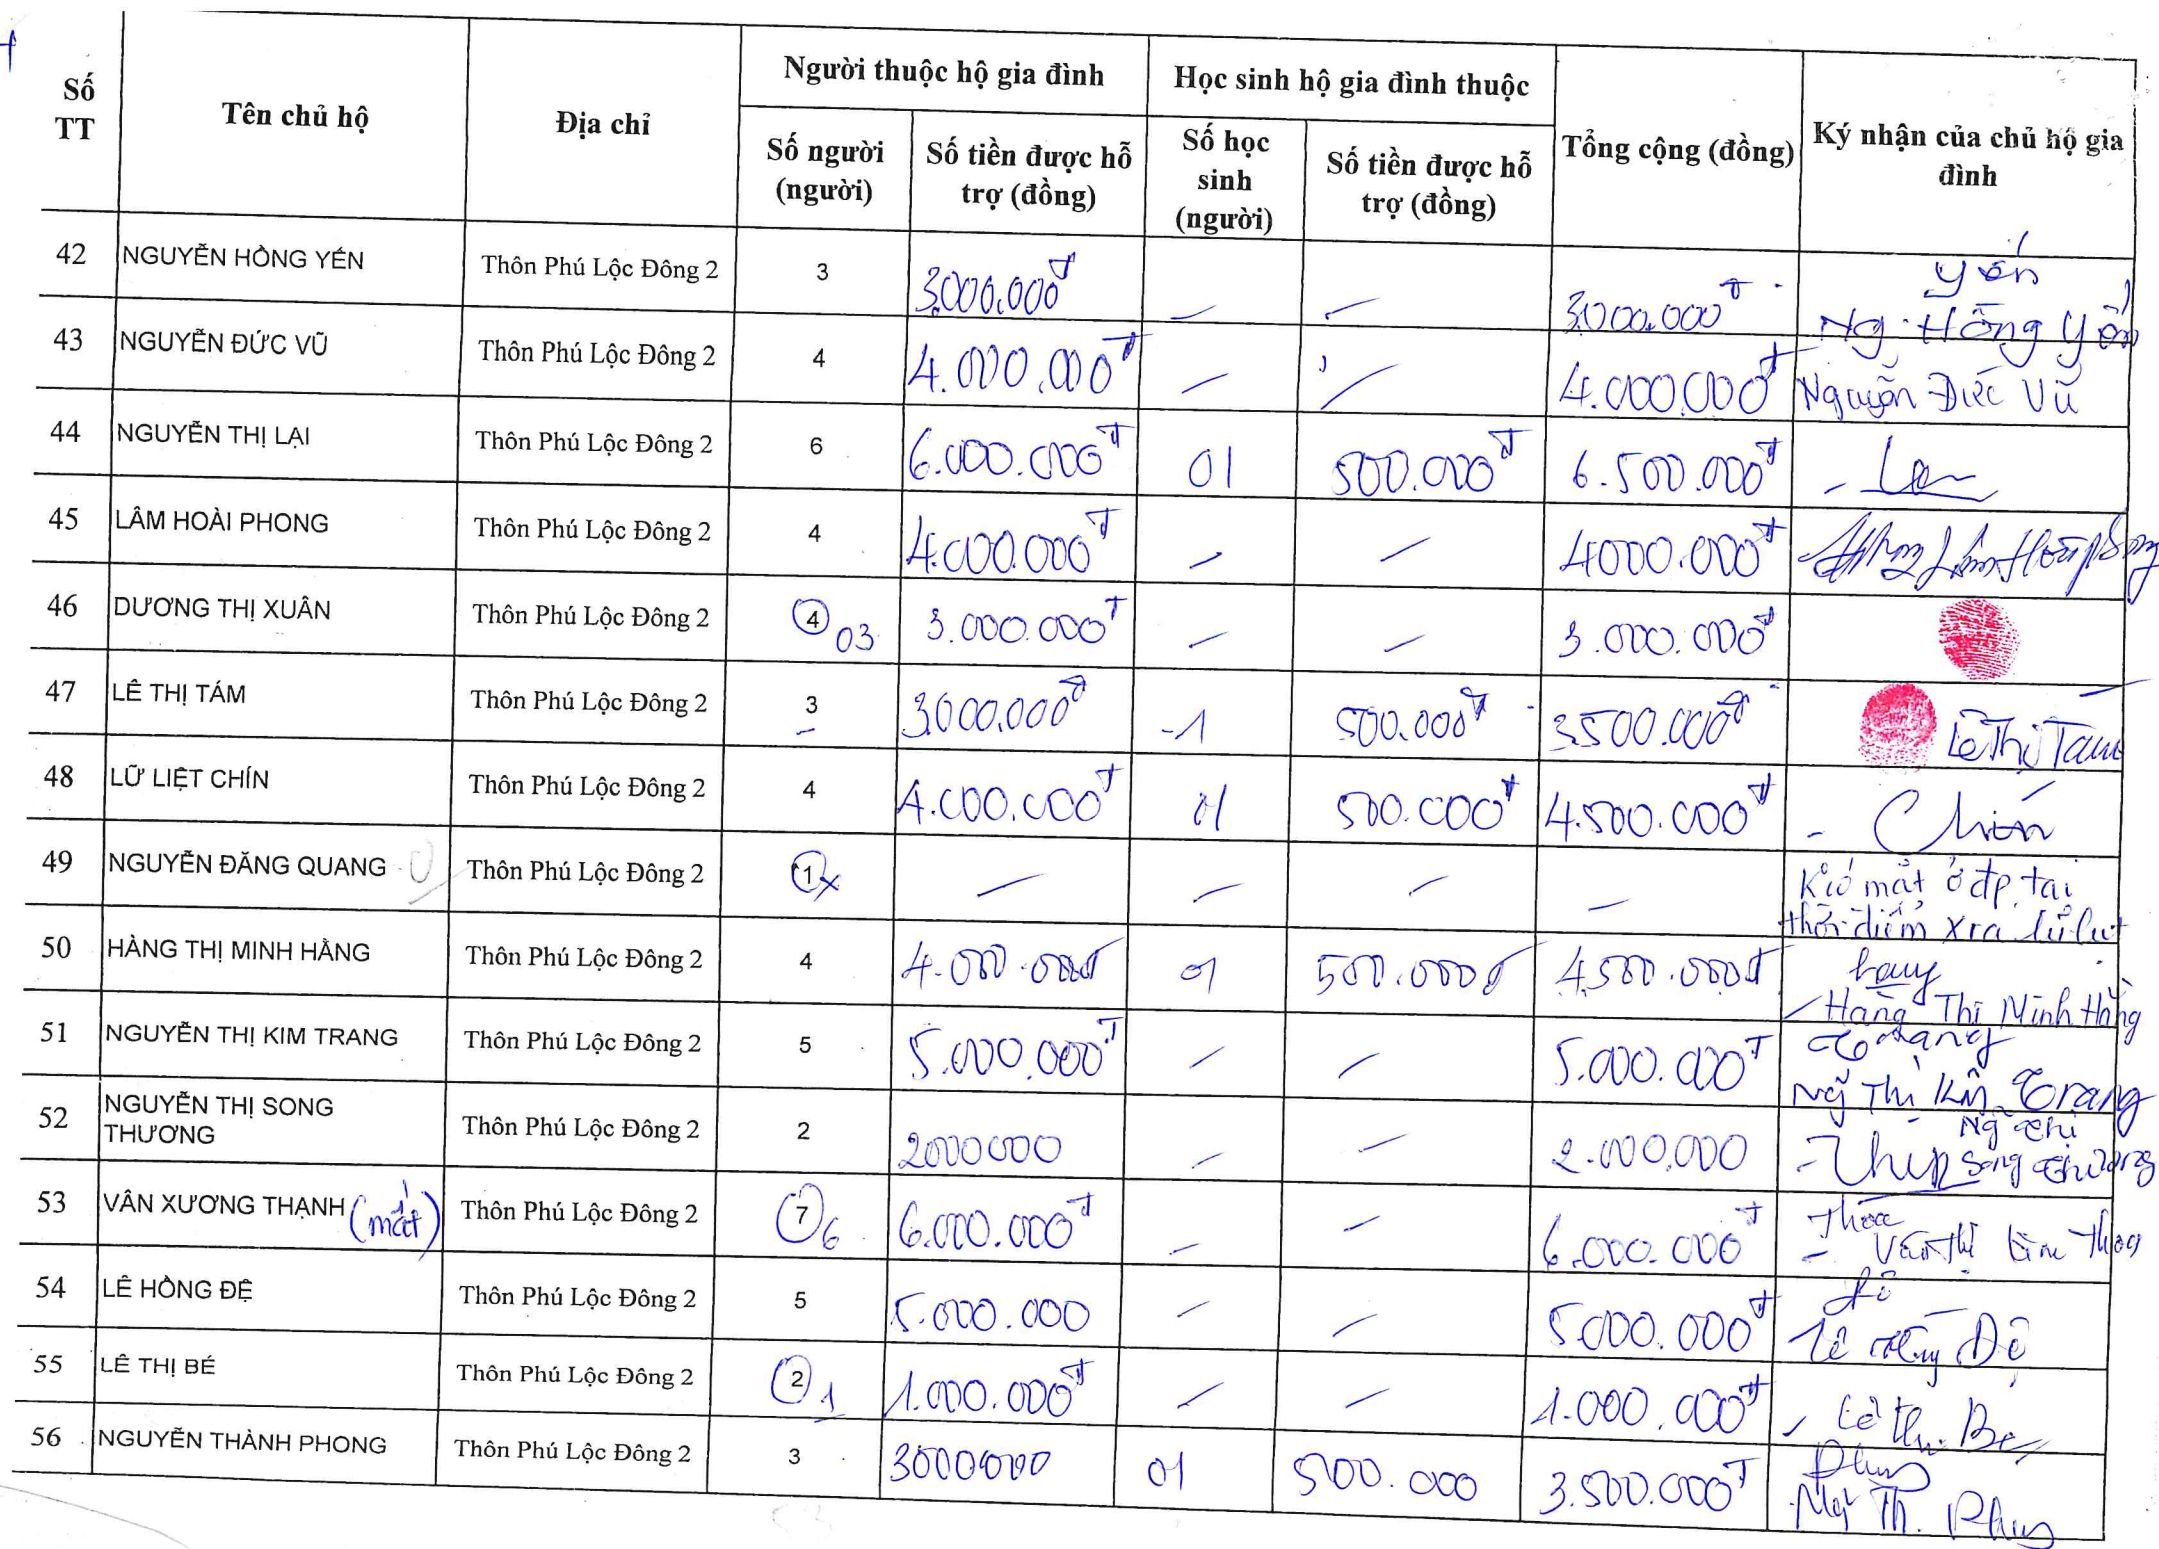 Số TT
Tên chủ hộ
Địa chỉ
Người thuộc hộ gia đình
Học sinh hộ gia đình thuộc
Số người (người)
Số tiền được hỗ trợ (đồng)
Số học sinh (người)
Số tiền được hỗ trợ (đồng)
Tổng cộng (đồng)
Ký nhận của chủ hộ gia đình
42 NGUYỄN HỒNG YẾN Thôn Phú Lộc Đông 2 3 3.000.000đ - - 3.000.000đ Yến
Ng. Hồng Yến
43 NGUYỄN ĐỨC VŨ Thôn Phú Lộc Đông 2 4 4.000.000đ - - 4.000.000đ Nguyễn Đức Vũ
44 NGUYỄN THỊ LẠI Thôn Phú Lộc Đông 2 6 6.000.000đ 01 500.000đ 6.500.000đ
45 LÂM HOÀI PHONG Thôn Phú Lộc Đông 2 4 4.000.000đ - - 4000.000đ Lâm Hoài Phong
46 DƯƠNG THỊ XUÂN Thôn Phú Lộc Đông 2 4 03 3.000.000đ - - 3.000.000đ
47 LÊ THỊ TÁM Thôn Phú Lộc Đông 2 3 3.000.000đ -1 500.000đ 3.500.000đ Lê Thị Tám
48 LỮ LIỆT CHÍN Thôn Phú Lộc Đông 2 4 4.000.000đ 01 500.000đ 4.500.000đ - Chín
49 NGUYỄN ĐĂNG QUANG Thôn Phú Lộc Đông 2 1 x - - - - mặt ở đp tại
thời điểm xra lũ lụt
50 HÀNG THỊ MINH HẰNG Thôn Phú Lộc Đông 2 4 4.000.000đ 01 500.000đ 4.500.000đ hằng
Hàng Thị Minh Hằng
51 NGUYỄN THỊ KIM TRANG Thôn Phú Lộc Đông 2 5 5.000.000đ - - 5.000.000đ Trang
Ng Thị Kim Trang
52 NGUYỄN THỊ SONG THƯƠNG Thôn Phú Lộc Đông 2 2 2000000 - - 2.000.000 Ng Thị
Song Thương
53 VÂN XƯƠNG THẠNH (mất) Thôn Phú Lộc Đông 2 7 6 6.000.000đ - - 6.000.000đ Thoa
- Văn Thị Kim Thoa
54 LÊ HỒNG ĐỆ Thôn Phú Lộc Đông 2 5 5.000.000 - - 5.000.000đ Đệ
Lê Hồng Đệ
55 LÊ THỊ BÉ Thôn Phú Lộc Đông 2 2 1 1.000.000đ - - 1.000.000đ Lê Thị Bé
56 NGUYỄN THÀNH PHONG Thôn Phú Lộc Đông 2 3 3000000 01 500.000 3.500.000đ
Ng Th. Phong